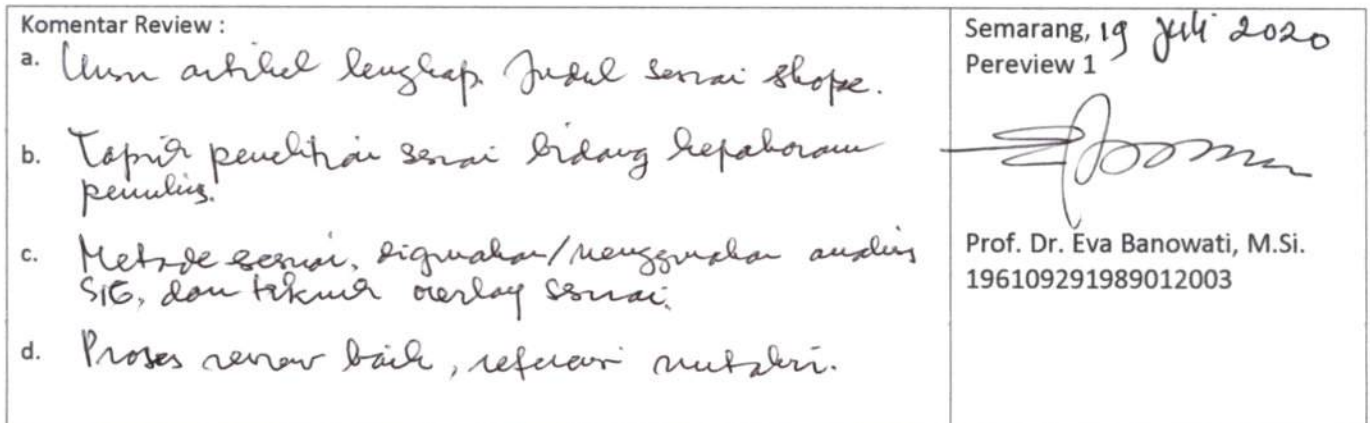 Komentar Review :
a. Unsur artikel lengkap. Judul sesuai skope.
b. Topik penelitian sesuai bidang kepakaran
penulis.
c. Metode sesuai, digunakan/menggunakan analisis
SIG, dan teknik overlay sesuai.
d. Proses review baik, referensi mutakhir.
Semarang, 19 Juli 2020
Pereview 1
Prof. Dr. Eva Banowati, M.Si.
196109291989012003